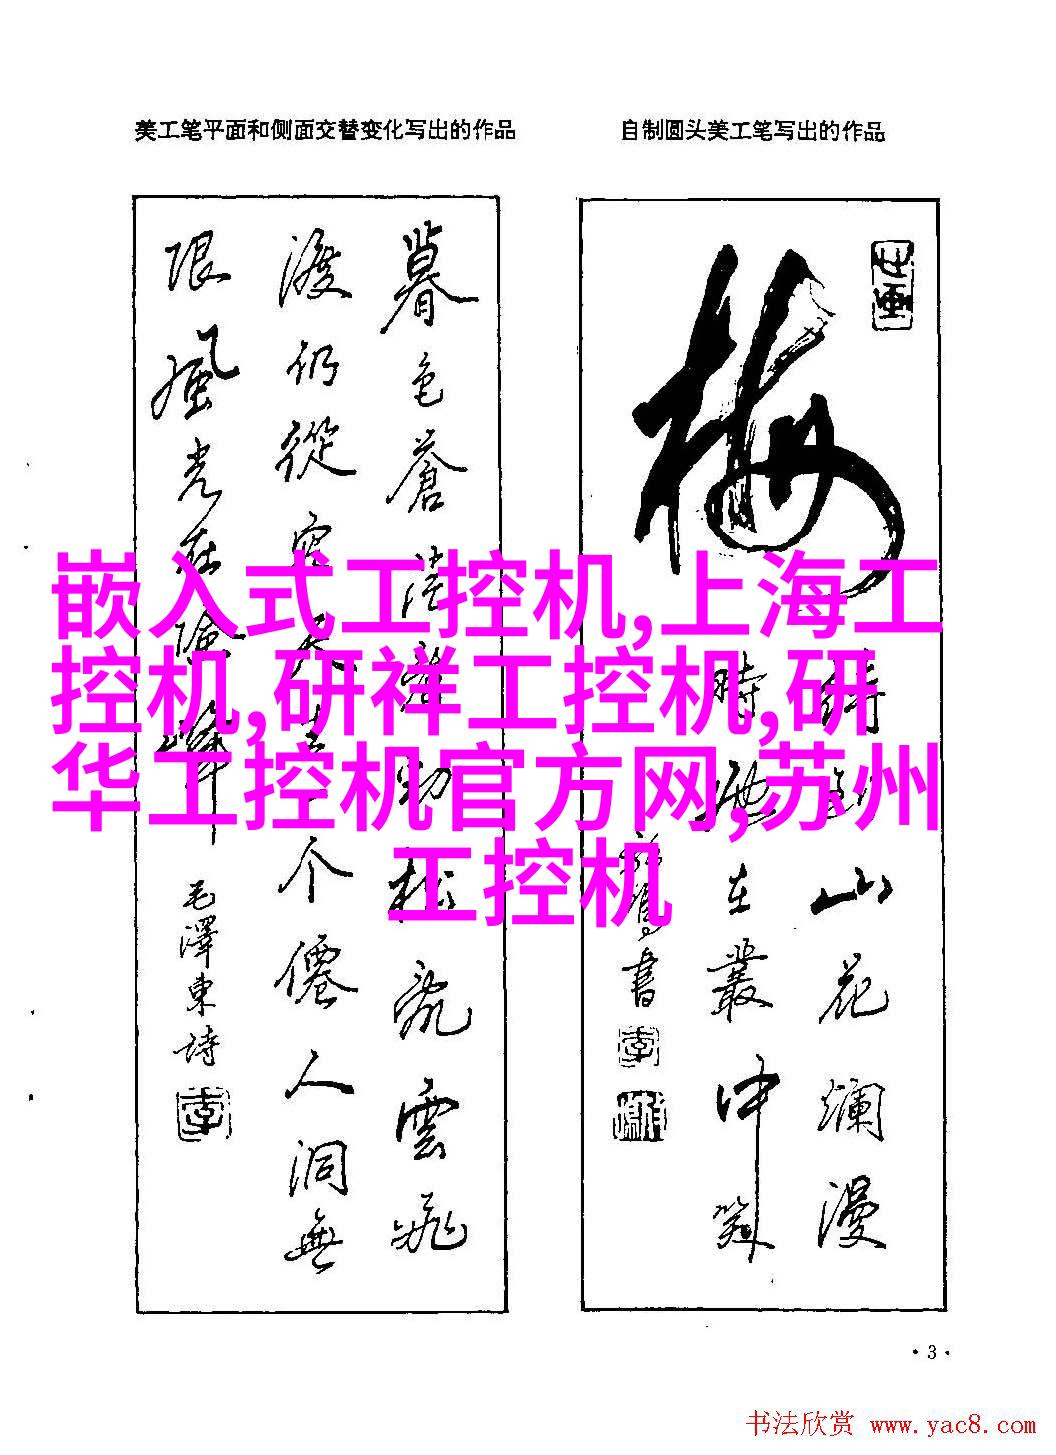 美工笔平面和侧面交替变化写出的作品
自制圆头美工笔写出的作品
暮色蒼茫看勁松亂雲飛
渡仍從容天生一个僊人洞無
限風光在險峰
毛澤東詩
李
梅
待到山花爛漫
時她在叢中笑
書
李
嵌入式工控机,上海工
控机,研祥工控机,研
华工控机官方网,苏州
工控机
·3·
书法欣赏 www.yac8.com